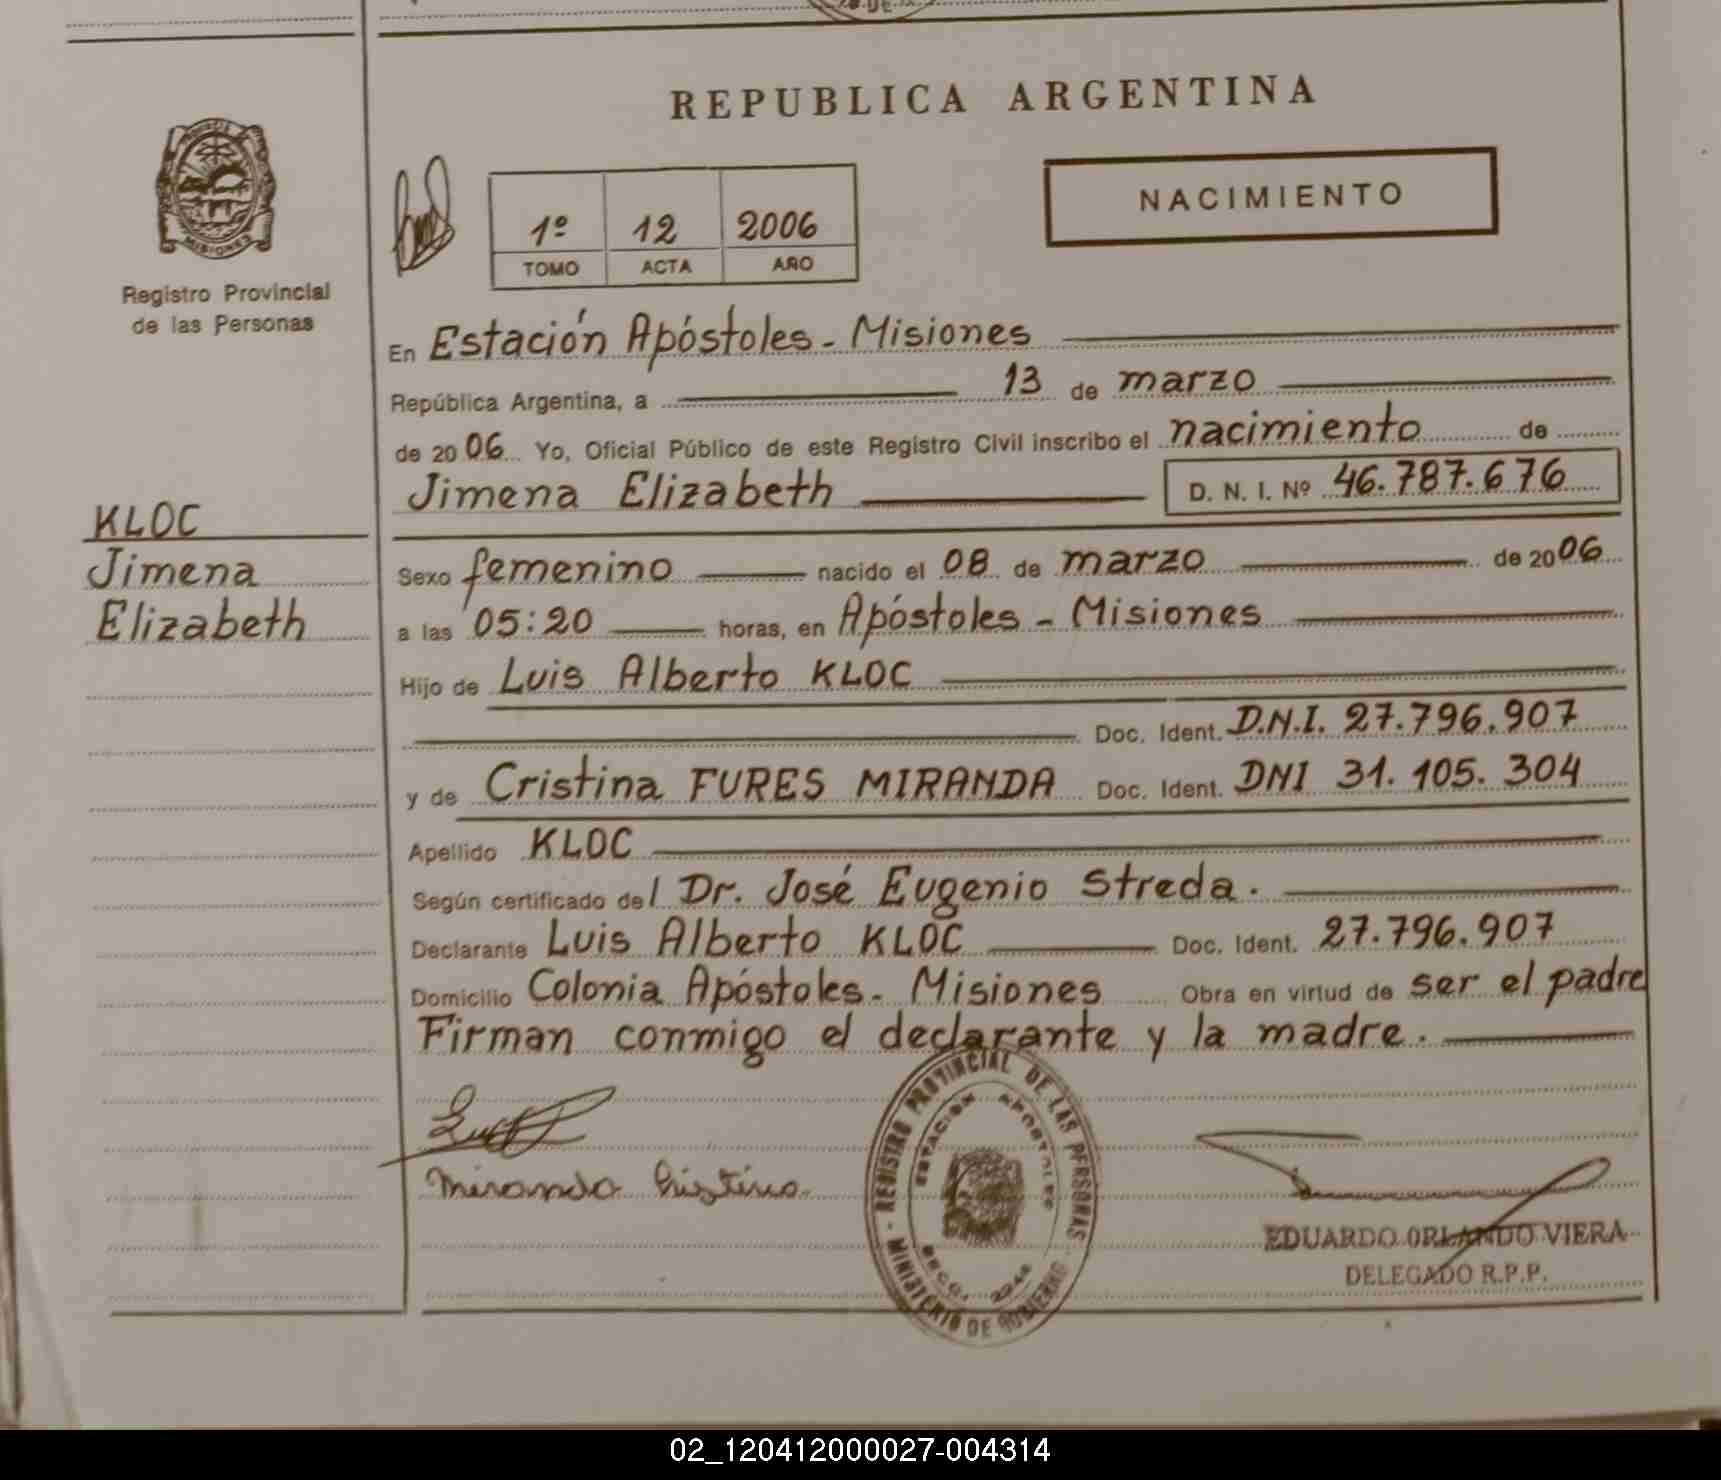 REPUBLICA ARGENTINA
PROVINCIA DE
MISIONES
Registro Provincial
de las Personas
1º 12 2006
TOMO ACTA AÑO
NACIMIENTO
En Estación Apóstoles - Misiones
República Argentina, a 13 de marzo
de 2006 Yo, Oficial Público de este Registro Civil inscribo el nacimiento de
Jimena Elizabeth D. N. I. Nº 46.787.676
KLOC
Jimena
Elizabeth
Sexo femenino nacido el 08 de marzo de 2006
a las 05:20 horas, en Apóstoles - Misiones
Hijo de Luis Alberto KLOC
Doc. Ident. D.N.I. 27.796.907
y de Cristina FURES MIRANDA Doc. Ident. DNI 31.105.304
Apellido KLOC
Según certificado del Dr. José Eugenio Streda.
Declarante Luis Alberto KLOC Doc. Ident. 27.796.907
Domicilio Colonia Apóstoles - Misiones Obra en virtud de ser el padre
Firman conmigo el declarante y la madre.
Miranda Cristina
REGISTRO PROVINCIAL DE LAS PERSONAS
MINISTERIO DE GOBIERNO
ESTACION APOSTOLES
EDUARDO ORLANDO VIERA
DELEGADO R.P.P.
02_120412000027-004314